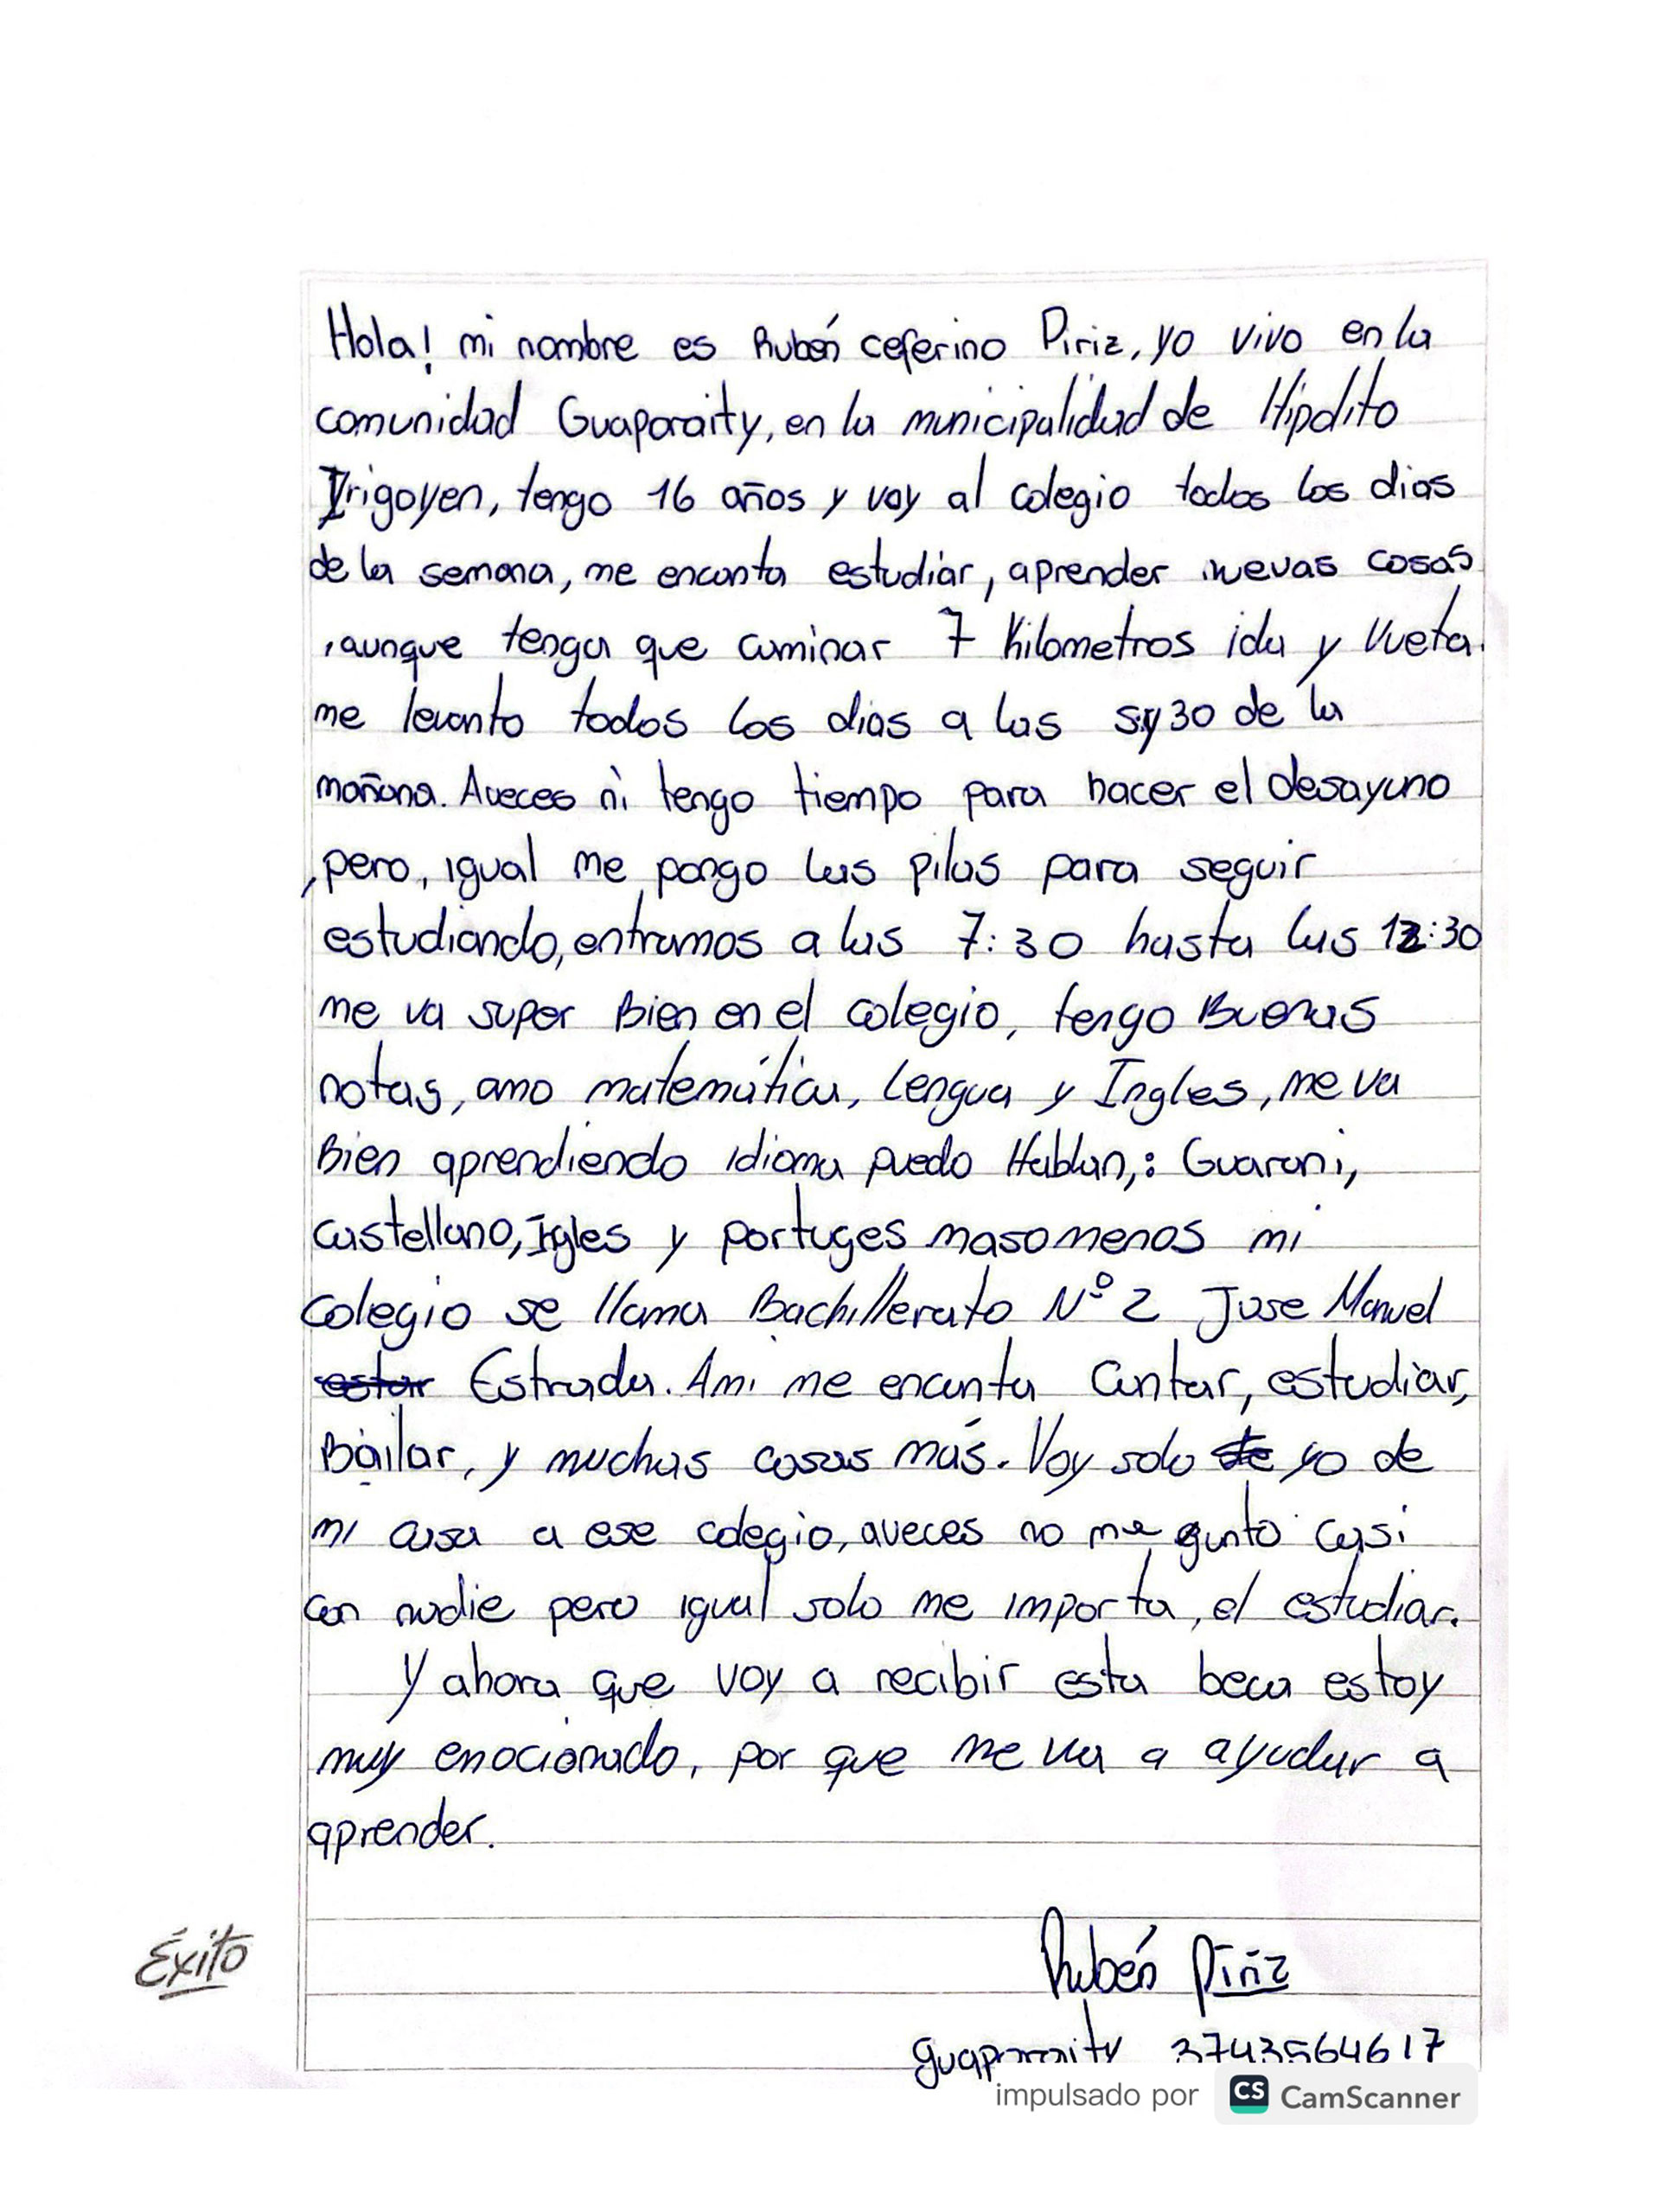 Hola! mi nombre es Rubén ceferino Piriz, yo vivo en la
comunidad Guaporaity, en la municipalidad de Hipolito
Yrigoyen, tengo 16 años y voy al colegio todos los dias
de la semana, me encanta estudiar, aprender nuevas cosas
, aunque tenga que caminar 7 Kilometros ida y vueta.
me levanto todos los dias a las 5y30 de la
mañana. Aveces ni tengo tiempo para hacer el desayuno
, pero, igual me pongo las pilas para seguir
estudiando, entramos a las 7:30 hasta las 12:30
me va super Bien en el colegio, tengo Buenas
notas, amo matemática, Lengua y Ingles, me va
Bien aprendiendo idioma puedo Hablan,: Guarani,
castellano, Igles y portuges masomenos mi
colegio se llama Bachillerato Nº 2 Jose Manuel
estar Estrada. Ami me encanta Cantar, estudiar,
Bailar, y muchas cosas más. Voy solo de yo de
mi casa a ese colegio, aveces no me gunto casi
con nadie pero igual solo me importa, el estudiar.
Y ahora que voy a recibir esta beca estoy
muy emocionado, por que me va a ayudar a
aprender.
Éxito
Rubén Piriz
guaporaity 3743564617
impulsado por CS CamScanner